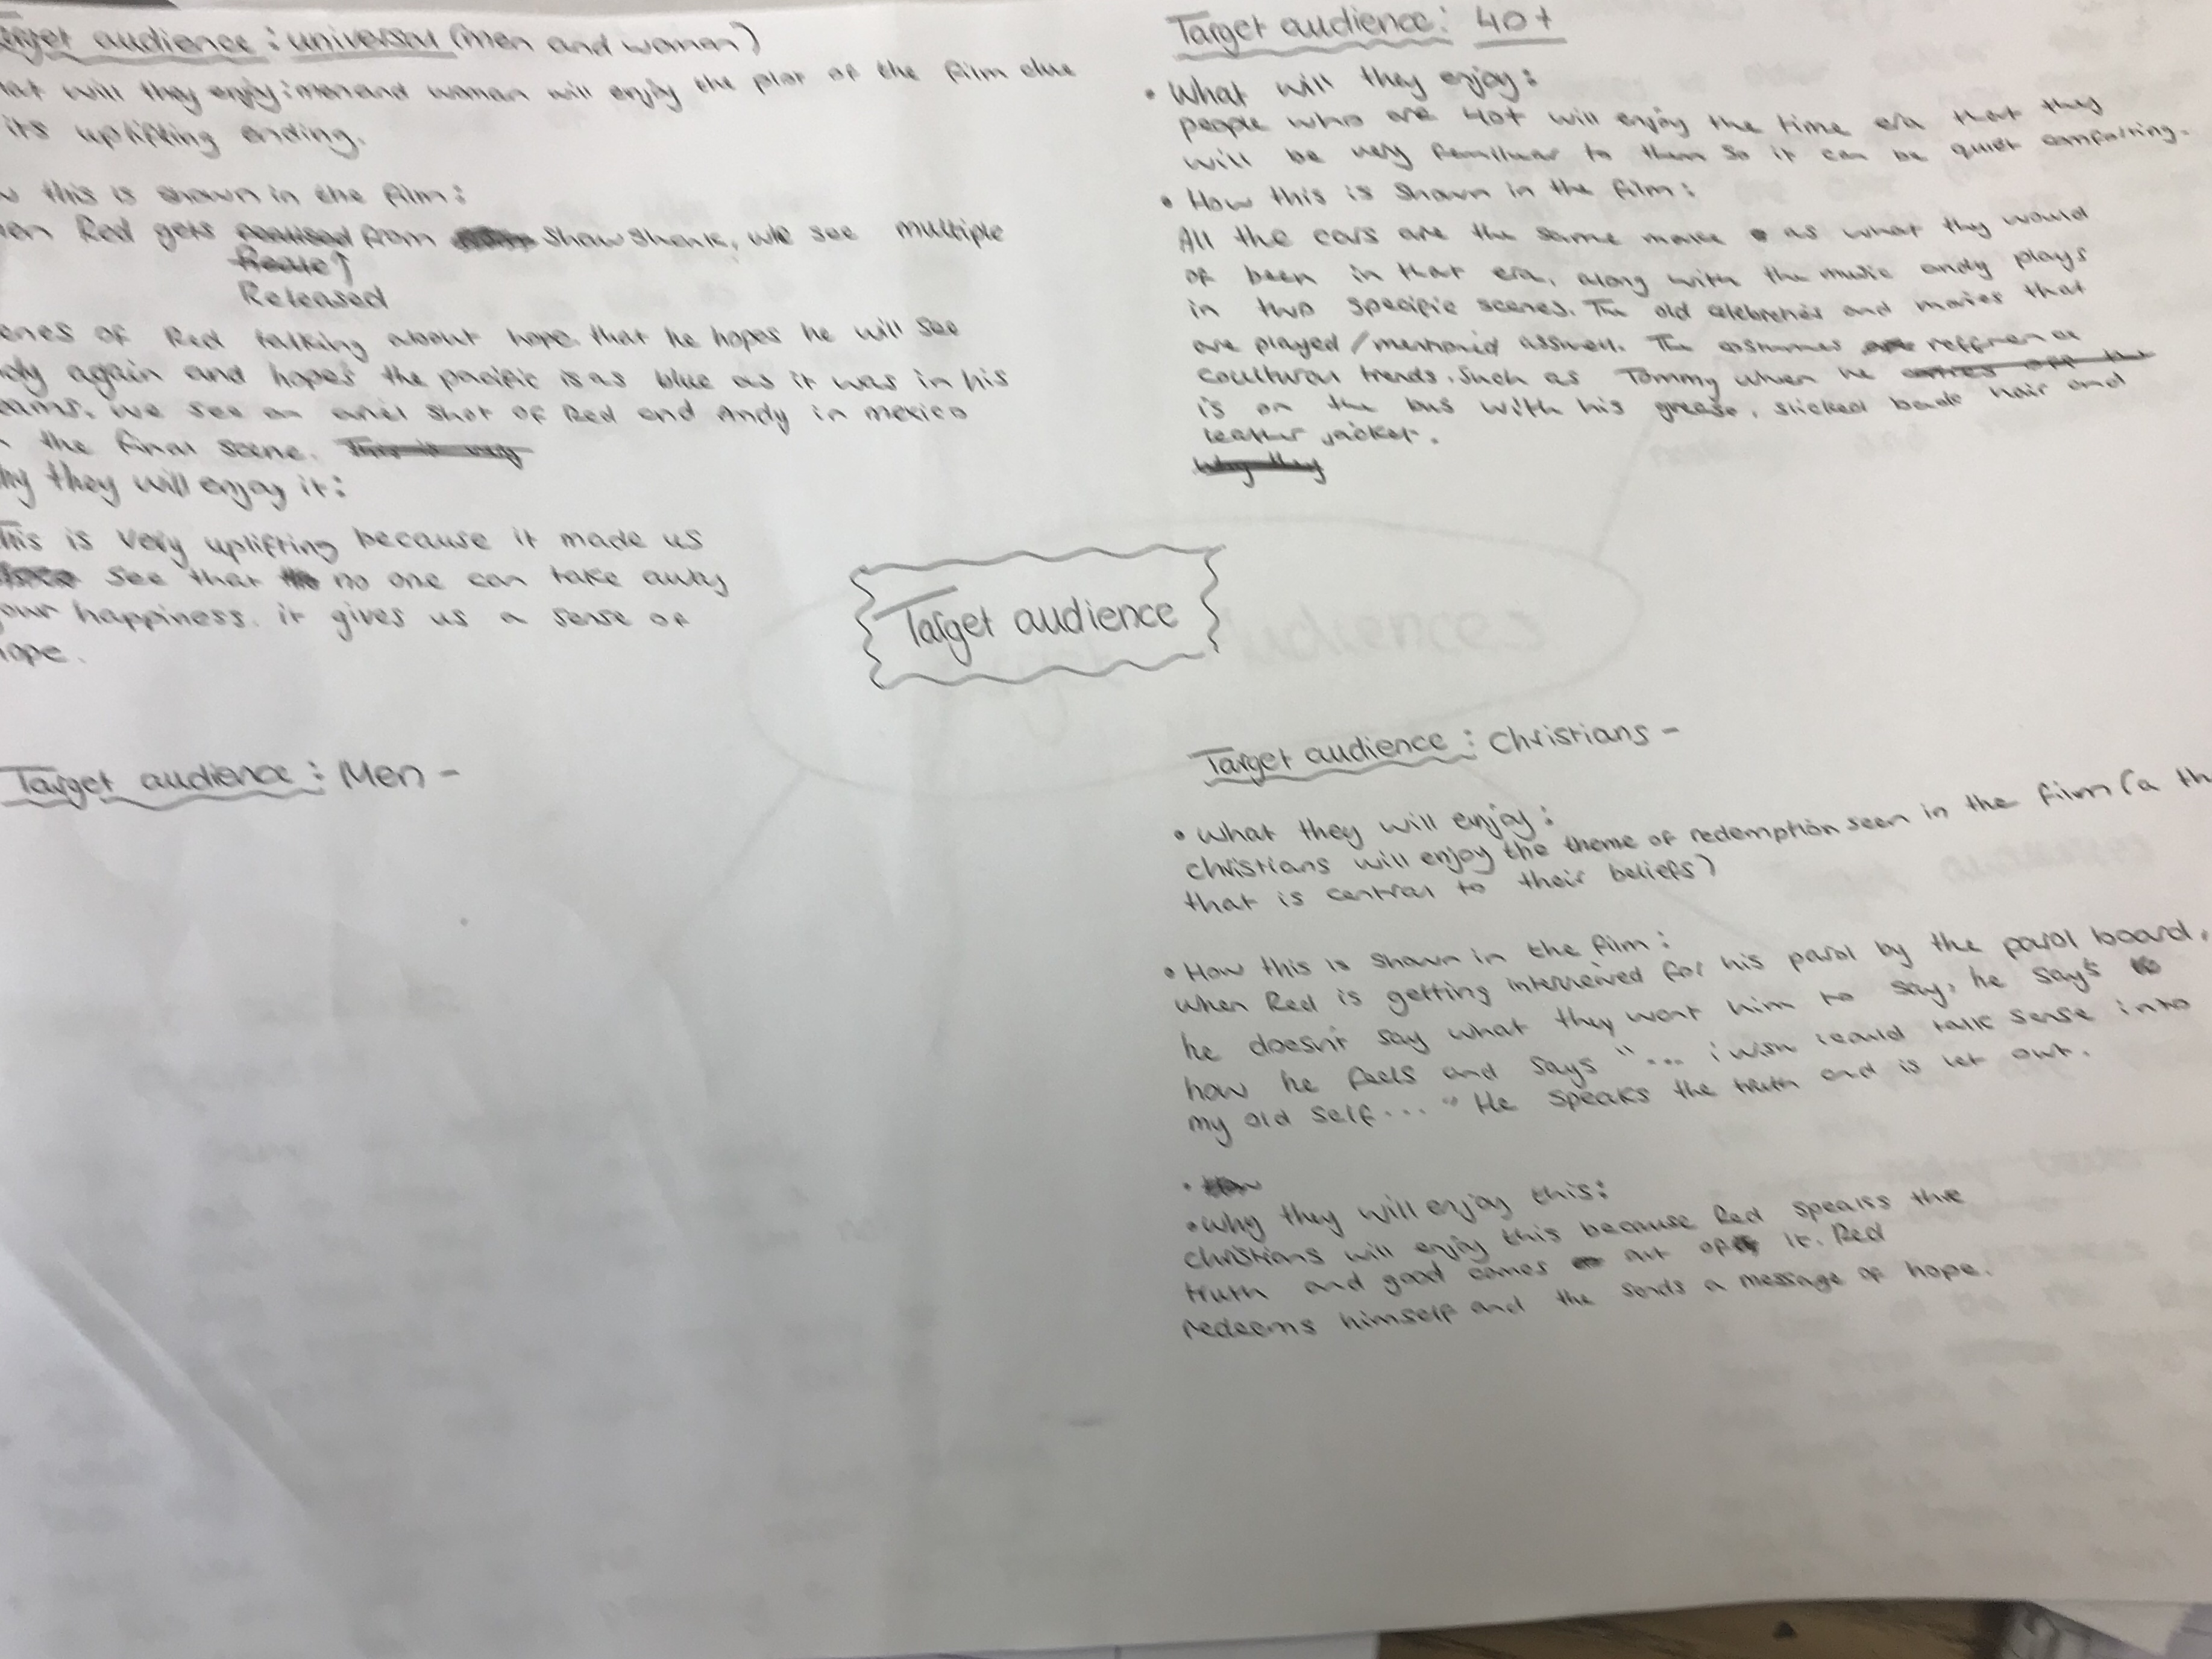 Target audience: universal (men and woman)
at will they enjoy: men and woman will enjoy the plot of the film due
its uplifting ending.
this is shown in the film:
en Red gets realised from Shawshank, we see multiple
Reale
Released
enes of Red talking about hope. that he hopes he will see
dy again and hopes the pacific is as blue as it was in his
eams. we see an ariel shot of Red and Andy in mexico
the final scene. This is very
hy they will enjoy it:
This is very uplifting because it made us
see that no one can take away
our happiness. it gives us a sense of
ope.
Target audience: 40+
• What will they enjoy:
people who are 40+ will enjoy the time era that they
will be very familiuar to them so it can be quiet comforting.
• How this is shown in the film:
All the cars are the same make as what they would
of been in that era, along with the music andy plays
in two specific scenes. The old celebreties and movies that
are played/mentionid asswell. The costumes are reffrence
coultural trends. Such as Tommy when he comes off the
is on the bus with his grease, slicked back hair and
leather jacket.
Why they
Target audience
Target audience: Men -
Target audience: Christians -
• What they will enjoy:
christians will enjoy the theme of redemption seen in the film (a th
that is central to their beliefs)
• How this is shown in the film:
when Red is getting interveiwed for his parol by the parol board,
he doesn't say what they want him to say, he says
how he feels and says "... i wish i could talk sense into
my old self..." He speaks the truth and is let out.
• How
• Why they will enjoy this:
christians will enjoy this because Red speakss the
truth and good comes out of it. Red
redeems himself and the sends a message of hope.